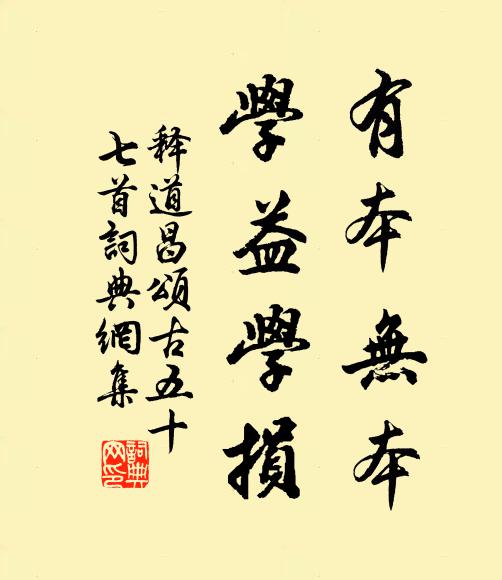 有本無本
學益學損
释道昌頌古五十
七首詞典網集
詞典
网印